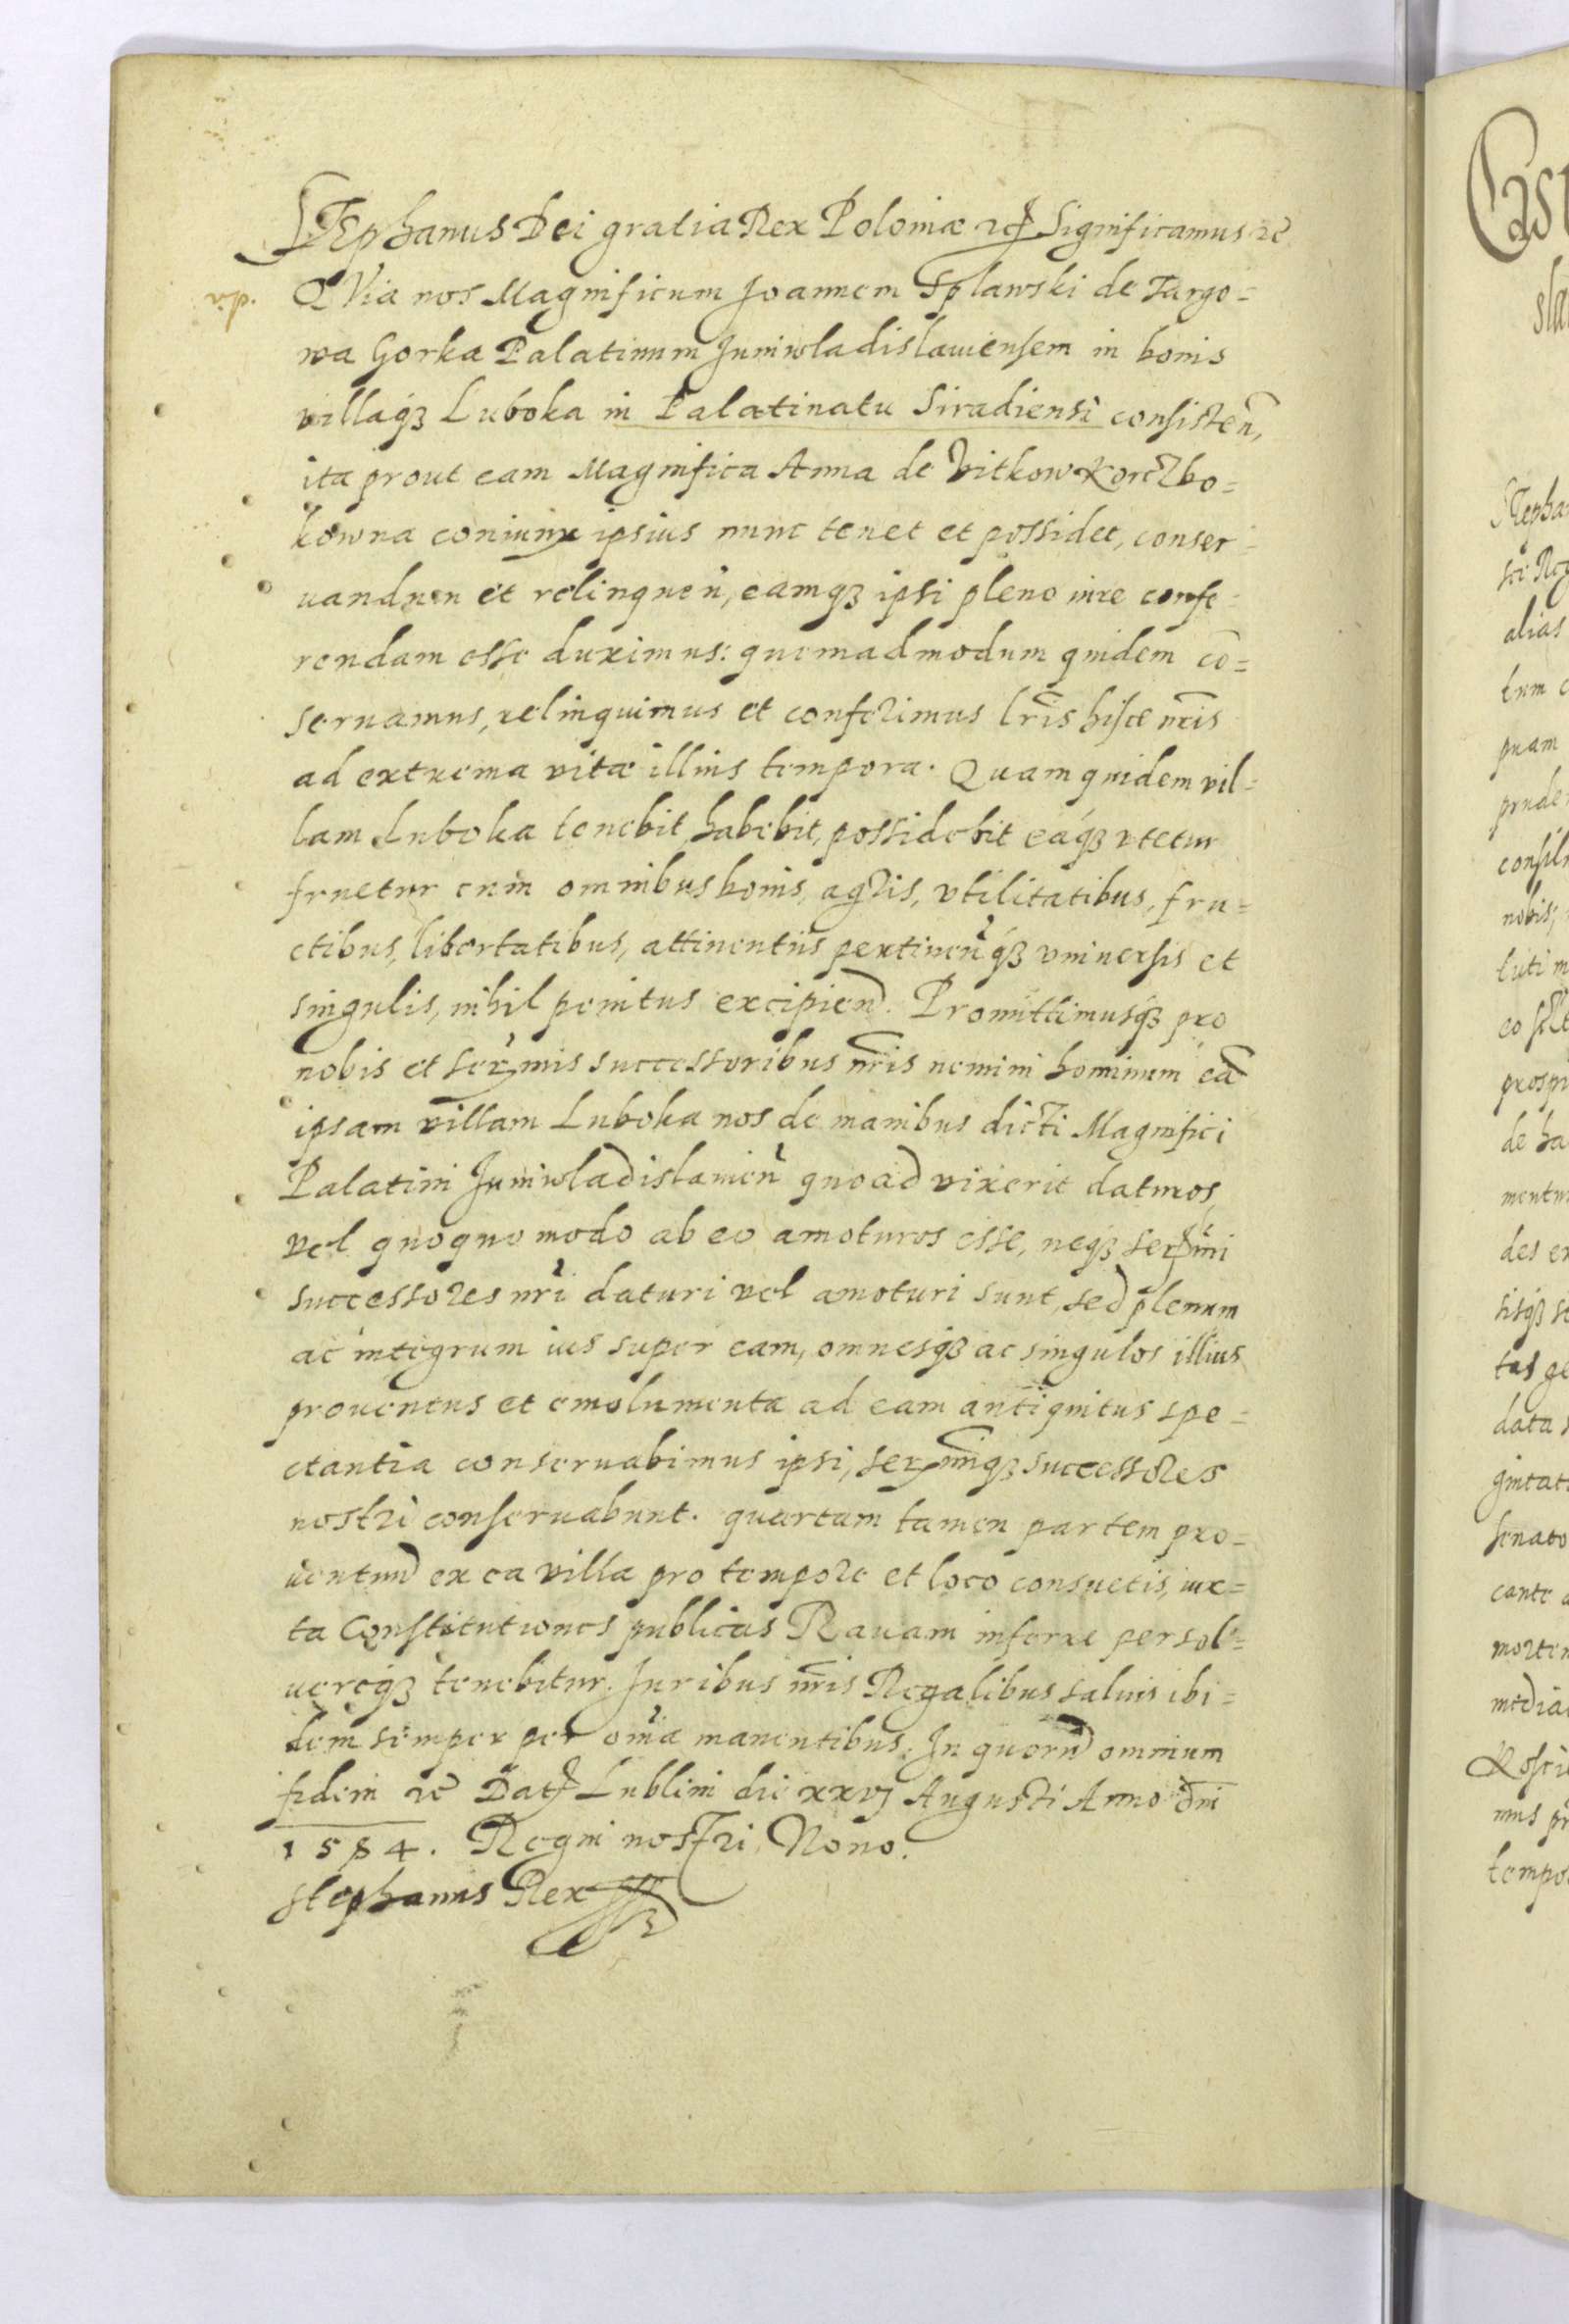 STEphanus Dei gratia Rex Poloniæ etc Significamus etc
vip. QVia nos Magnificum Joannem Splawski de Targo=
wa Gorka Palatinum Juniwladislauiensem in bonis
villaq3 Luboka in Palatinatu Siradiensi consisteñ,
ita prout eam Magnifica Anna de Vitkow Korczbo=
kowna coniunx ipsius nunc tenet et possidet, conser=
uandum et relinqueñ, eamq3 ipsi pleno iure confe=
rendam esse duximus: quemadmodum quidem cō=
seruamus, relinquimus et conferimus lr̃is hisce nr̃is
ad extrema vitæ illius tempora. Quam quidem vil=
lam Luboka tenebit, habebit, possidebit eaq3 vtetur
fruetur cum omnibus bonis, agris, vtilitatibus, fru=
ctibus, libertatibus, attinentiis pertineñq3 vniuersis et
singulis, nihil penitus excipieñd. Promittimusq3 pro
nobis et serm̃is successoribus nr̃is nemini hominum eā
ipsam villam Luboka nos de manibus dicti Magnifici
Palatini Juniwladislauieñ quoad vixerit daturos,
vel quoquo modo ab eo amoturos esse, neq3 serm̃i
successores nr̃i daturi vel amoturi sunt, sed plenum
ac integrum ius super eam, omnesq3 ac singulos illius
prouentus et emolumenta ad eam antiquitus spe=
ctantia conseruabimus ipsi, serm̃iq3 successores
nostri conseruabunt. quartam tamen partem pro=
uentuũ ex ea villa pro tempore et loco consuetis, iux=
ta Constitutiones publicas Rauam inferre persol=
uereq3 tenebitur. Juribus nr̃is Regalibus saluis ibi=
dem semper per om̃ia manentibus. In quorũ omnium
fidem etc Datt Lublini die xxvj Augusti Anno dñi
1584. Regni nostri Nono.
Stephanus Rex